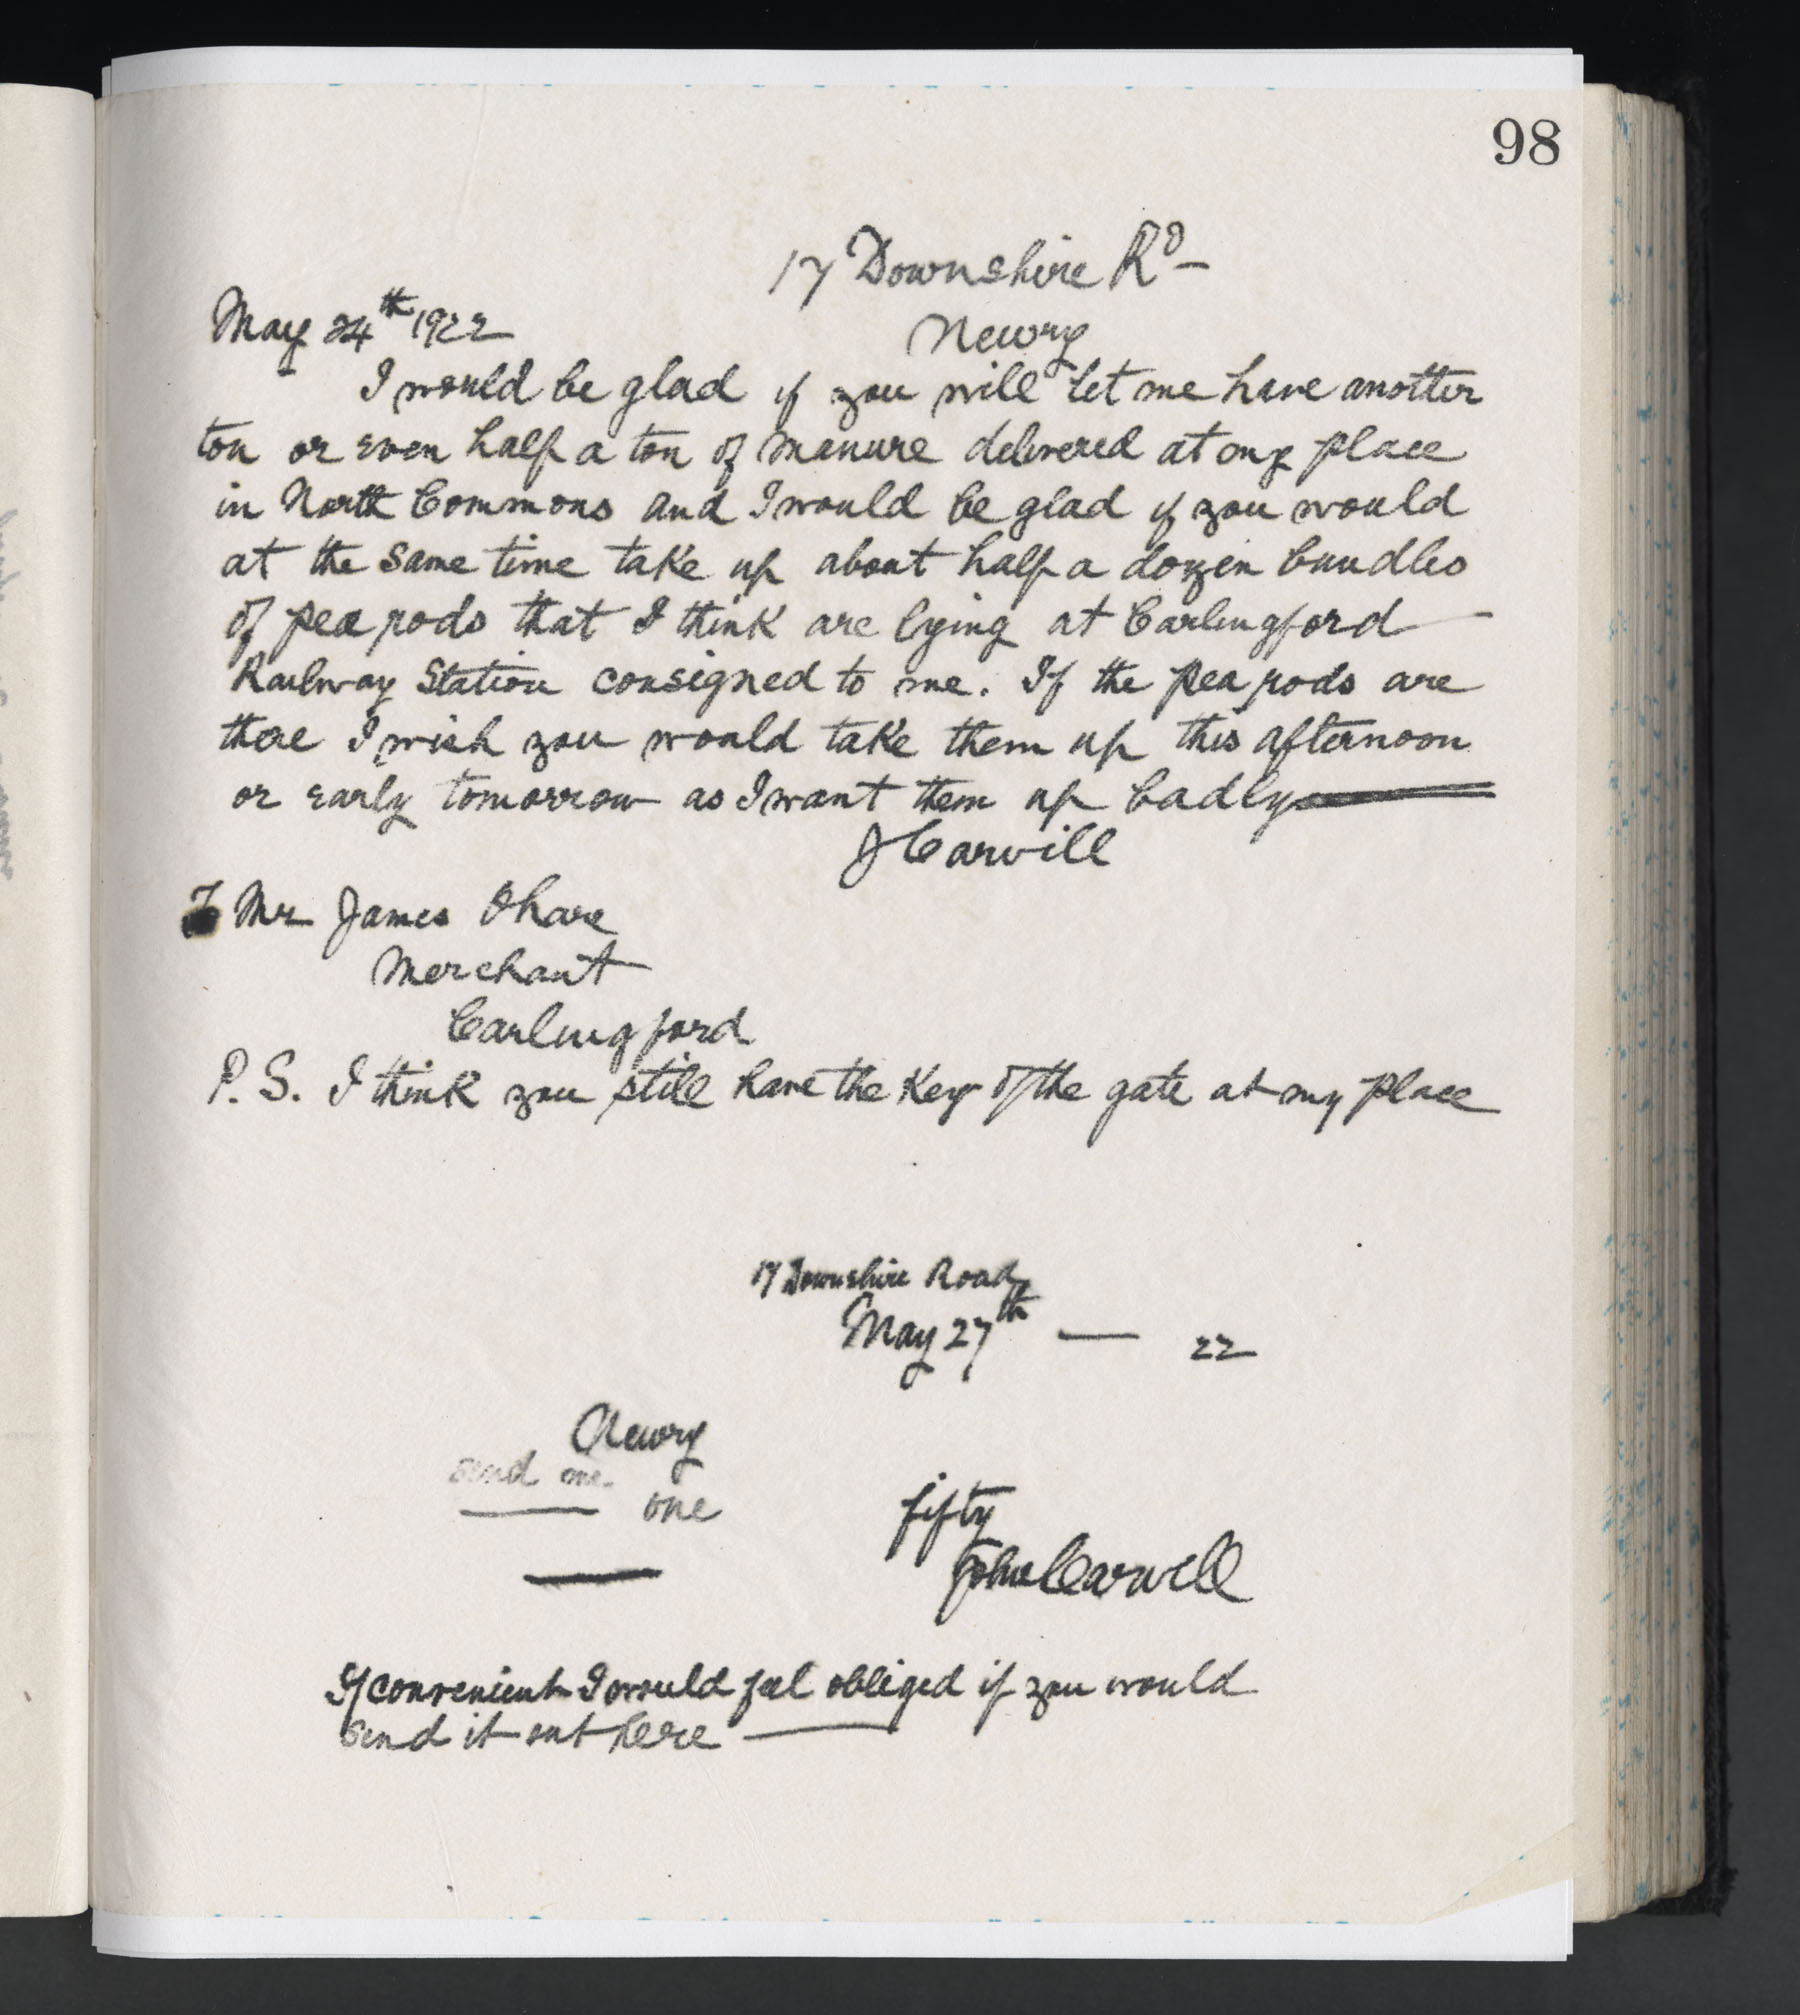 98
17 Downshire Rd —
May 24th 1922
Newry
I would be glad if you will let me have another
ton or even half a ton of manure delivered at my place
in North Commons and I would be glad if you would
at the same time take up about half a dozen bundles
of pea rods that I think are lying at Carlingford —
Railway Station consigned to me. If the pea rods are
there I wish you would take them up this afternoon
or early tomorrow as I want them up badly
J Carvill
To Mr James Ohare
Merchant
Carlingford
P.S. I think you still have the key of the gate at my place
17 Downshire Road
May 27th — 22
Newry
send me
— one fifty
John Carvill
If convenient I would feel obliged if you would
send it out here —